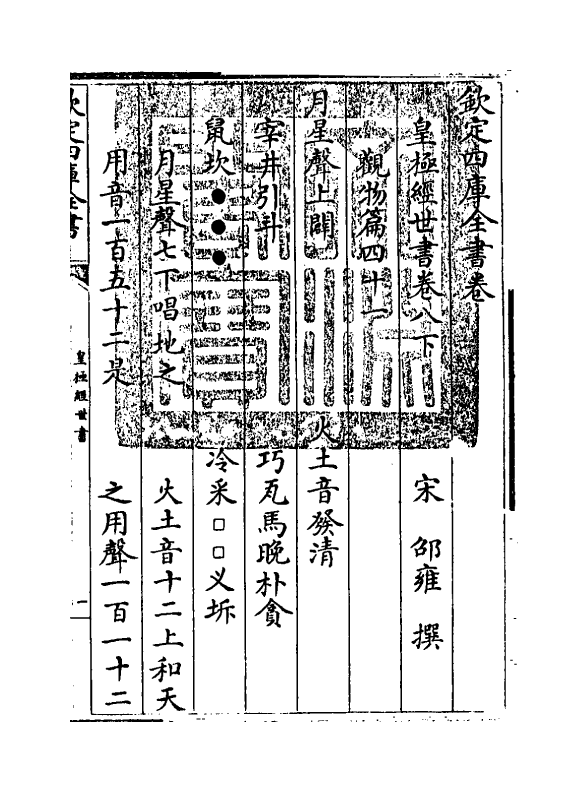 欽定四庫全書卷
皇極經世書卷八下
宋 邵雍 撰
觀物篇四十一
月星聲上闢 火土音發清
宰井引斗 巧瓦馬晚朴貪
鼠坎●●● 冷采□□叉坼
月星聲七下唱地之 火土音十二上和天
用音一百五十二是 之用聲一百一十二
欽定四庫全書
皇極經世書
一